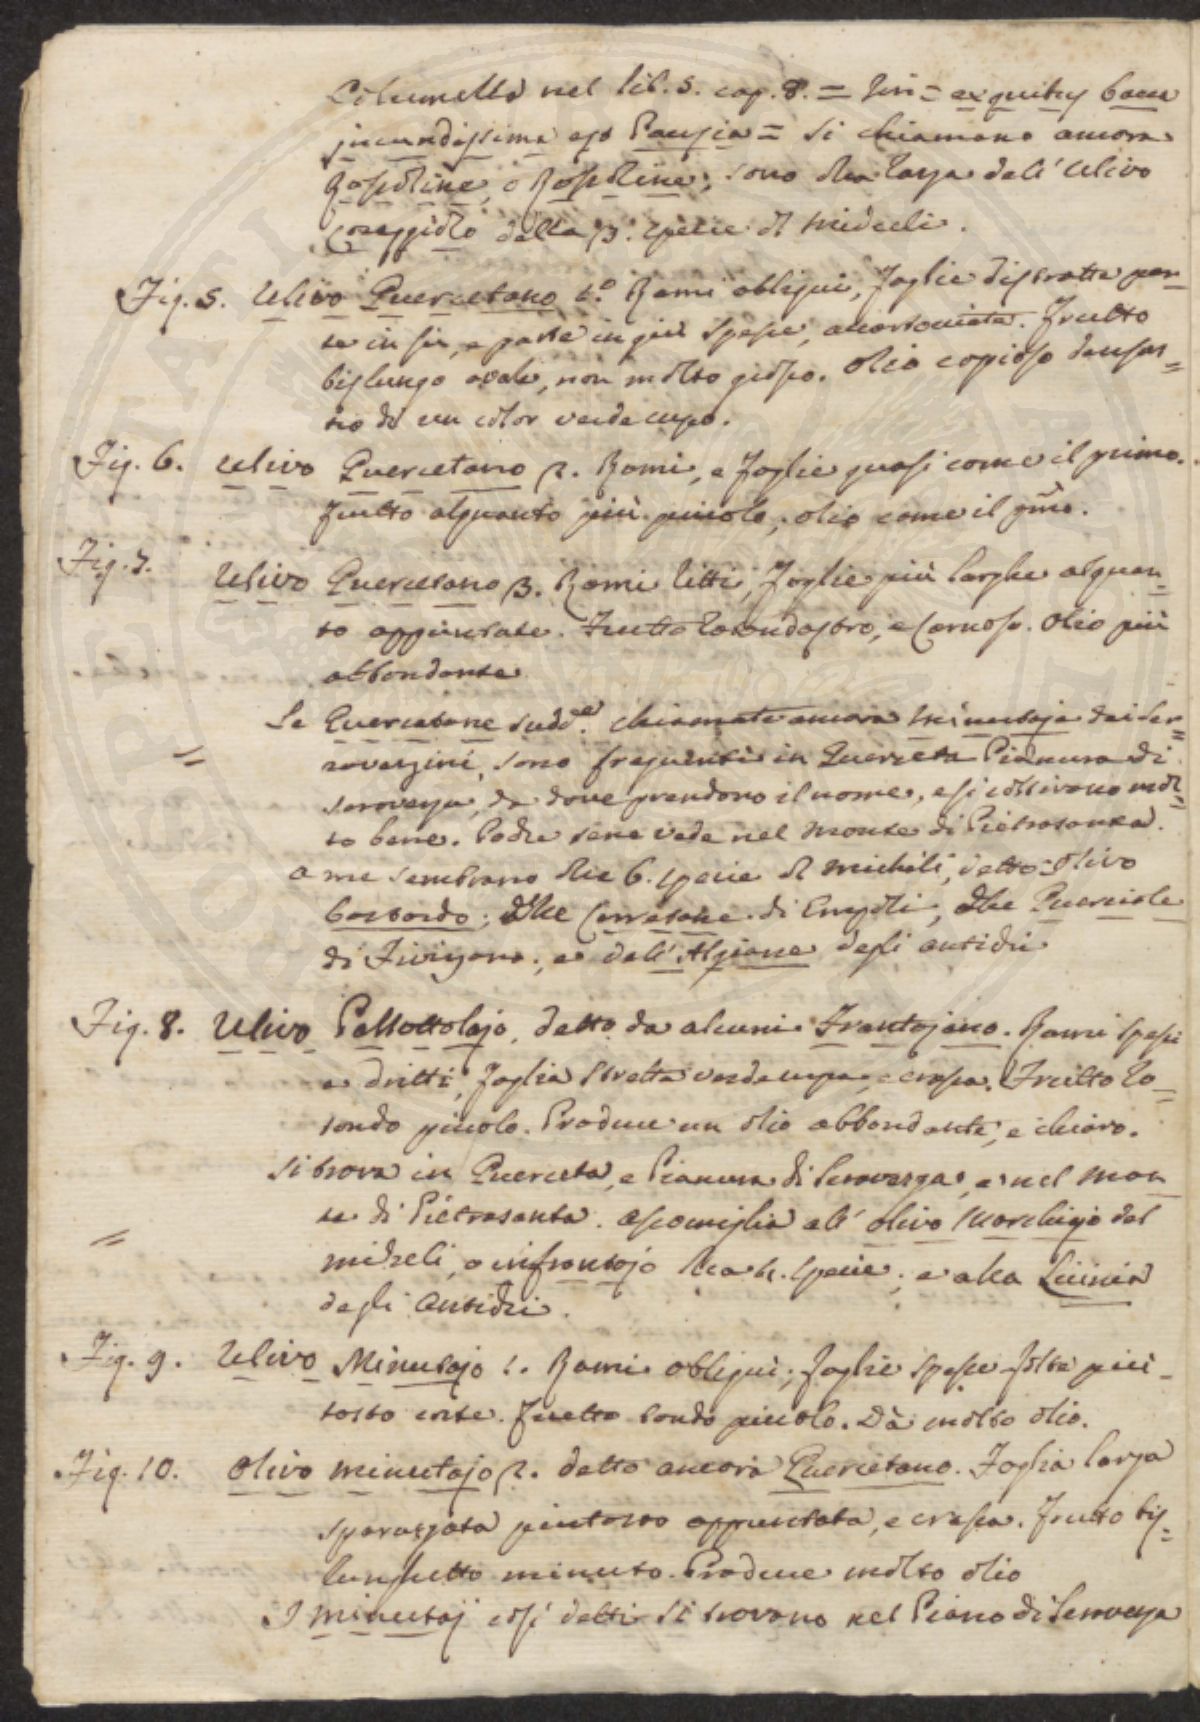 Columella nel lib. 5. cap. 8. = exquisitus bacca
jucundissima est Pausia = si chiamano ancora
Rossoline, o Rosselline; sono della razza dell' Ulivo
Coreggiolo della 3. specie di Micheli.
Fig. 5. Ulivo Quercetano 1.° Rami obliqui, foglie distratte par-
te in su, e parte in giù spesse, accartociate. Frutto
bislungo ovale, non molto grosso. Olio copioso densas=
tro di un color verde cupo.
Fig. 6. Ulivo Quercetano 2. Rami, e foglie quasi come il primo.
Frutto alquanto più piccolo, olio come il pmo.
Fig. 7. Ulivo Quercetano 3. Rami ritti, foglie più larghe alquan=
to appuntate. Frutto rotondastro, e carnoso. Olio più
abbondante
Le Quercetane sudd.e chiamate ancora Minutaje dai Ser=
ravezzini, sono frequenti in Querceta Pianura di
Seravezza, da dove prendono il nome, e si coltivano mol=
to bene. Poche se ne vede nel Monte di Pietrasanta.
a me sembrano della 6. specie di Micheli, detto Olivo
bastardo; delle Corretane di Empoli, delle Querciole
di Fivizzano, e dell' Algiane degli antichi
Fig. 8. Ulivo Pallottolajo, detto da alcuni Frantojano. Rami spessi
e dritti, foglia stretta verde cupa, e crassa. Frutto ro=
tondo piccolo. Produce un olio abbondante, e chiaro.
Si trova in Querceta, e Pianura di Seravezza, e nel Mon
te di Pietrasanta. Assomiglia all' olivo Morchiajo del
Micheli, o infrantojo della specie, e alla Licinia
degli Antichi.
Fig. 9. Ulivo Minutajo 1. Rami obliqui, foglie spesse folte più=
tosto corte. Frutto tondo piccolo. Dà molto olio.
Fig. 10. Olivo minutajo 2. detto ancora Quercetano. Foglia larga
sparazzata piuttosto appuntata, e crassa. Frutto bis=
lunghetto minuto. Produce molto olio
I Minutaj così detti si trovano nel Piano di Seravezza